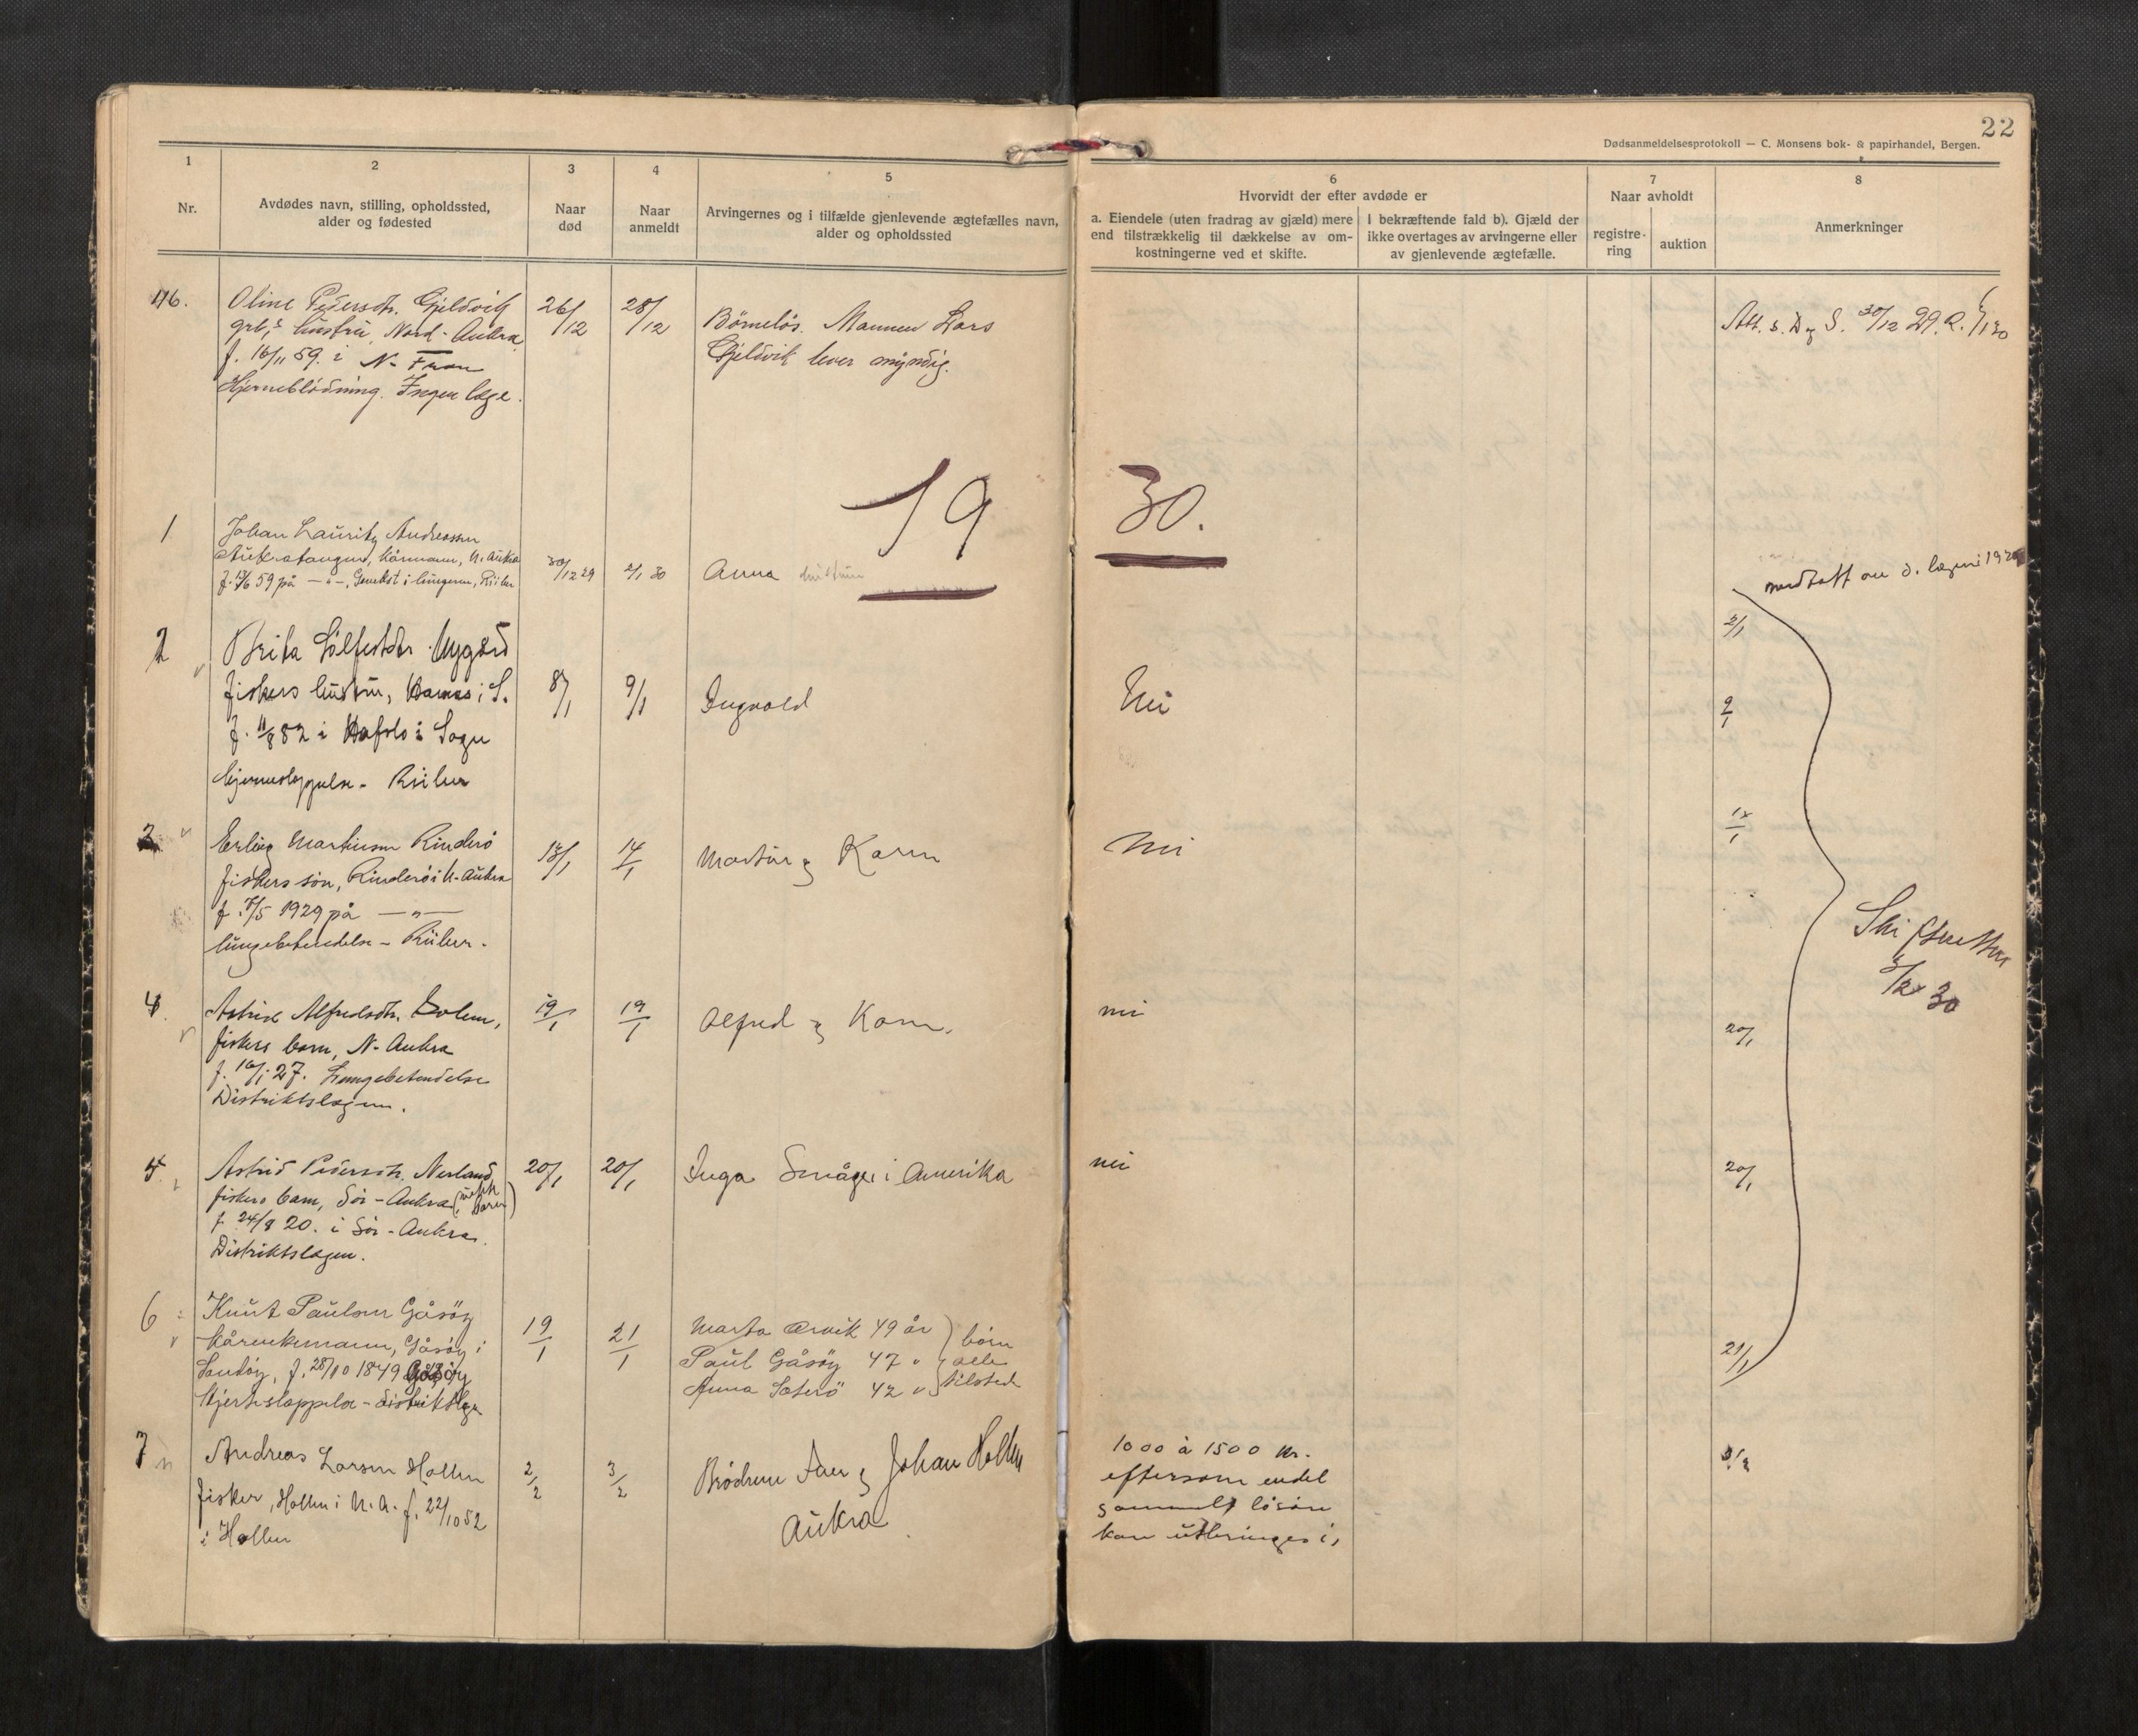 22
Dødsanmeldelsesprotokoll — C. Monsens bok- & papirhandel, Bergen.
1
Nr.
2
Avdødes navn, stilling, opholdssted,
alder og fødested
3
Naar
død
4
Naar
anmeldt
5
Arvingernes og i tilfælde gjenlevende ægtefælles navn,
alder og opholdssted
6
Hvorvidt der efter avdøde er
a. Eiendele (uten fradrag av gjæld) mere
end tilstrækkelig til dækkelse av om-
kostningerne ved et skifte.
I bekræftende fald b). Gjæld der
ikke overtages av arvingerne eller
av gjenlevende ægtefælle.
7
Naar avholdt
registre-
ring
auktion
8
Anmerkninger
46.
Oline Pedersdtr. Gjeldvik
hustru, Nord-Aukra
f. 16/11 59. i N-
Hjerneblödning. Ingen læge.
26/12
28/12
Börnelös. Mannen Lars
Gjeldvik lever myndig.
Att. s. D og S. 30/12 29.
19 30.
1
Johan Lauritz Andreassen
Aukratangen, kårmann, N. Aukra
59 på — " —, i lungerne, Riiber
30/12 29
2/1 30
Anna hustru
2/1
2
Brita Sölfestdtr. Nygård
fiskers hustru, Harøs i S.
f. 11/8 82 i Hafslo i Sogn
Riiber
8/1
9/1
Ingvald
Nei
9/1
3
Erling Martinsen Rinderö
fiskers sön, Rinderö i N-Aukra
f. 7/5 1929 på — " —
lungebetendelse - Riiber.
13/1
14/1
Martin og Karen
Nei
4.
Astrid Alfredsdtr. Solem,
fiskers barn, N-Aukra
f. 16/1 27. Lungebetendelse
Distriktslægen.
19/1
19/1
Alfred og Karen.
nei
20/1
5.
Astrid Pedersdtr. Nerland
fiskers barn, Sör-Aukra
f. 24/8 20. i Sör-Aukra.
Distriktslægen.
20/1
20/1
Inga Småge i Amerika
nei
20/1
6
Knut Paulsen Gåsöy
Gåsöy i
Sandöy, f. 28/10 1849 Gåsöy
Hjerteslappelse - distriktslægen
19/1
21/1
Marta Orvik 49 år
Paul Gåsöy 47 "
Anna Sæterö 42 "
börn
alle
tilsted
21/1
Skifteretten
3/2 30
7
Andreas Larsen Hollen
fisker, Hollen i N.A. f. 22/10 52
i Hollen
2/2
3/2
Brödrene og Johan Hollen
Aukra
1000 à 1500 kr.
eftersom endel
lösöre
kan utbringes i,
3/2